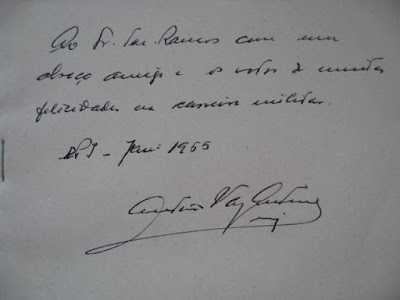 Ao Sr. Ten. Ramos com um
abraço amigo e os votos de muitas
felicidades na carreira militar.
EPI - Jan. 1955
António Vaz Antunes